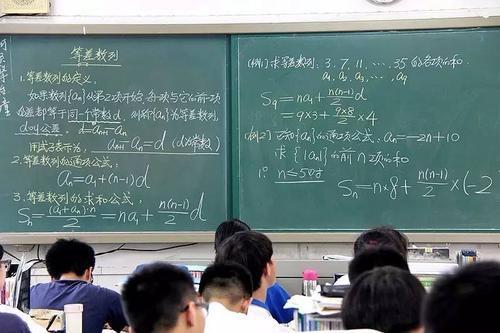 等差数列
1.等差数列的定义,
如果数列{an}从第2项开始,每一项与它的前一项
之差都等于同一个常数d,则称{an}为等差数列,
d叫公差.
用式子表示为: an+1-an=d (d为常数)
2.等差数列的通项公式:
an=a1+(n-1)d
3.等差数列的求和公式,
Sn=(a1+an)·n/2=na1+n(n-1)/2 d
(例1)求等差数列:3,7,11,…,35的各项的和.
a1,a2,a3,…,a9
S9=na1+n(n-1)/2 d
=9×3+9×8/2×4
(例2)已知{an}的通项公式,an=-2n+10
求{|an|}的前n项的和
1° n≤5时
Sn=n×8+n(n-1)/2×(-2